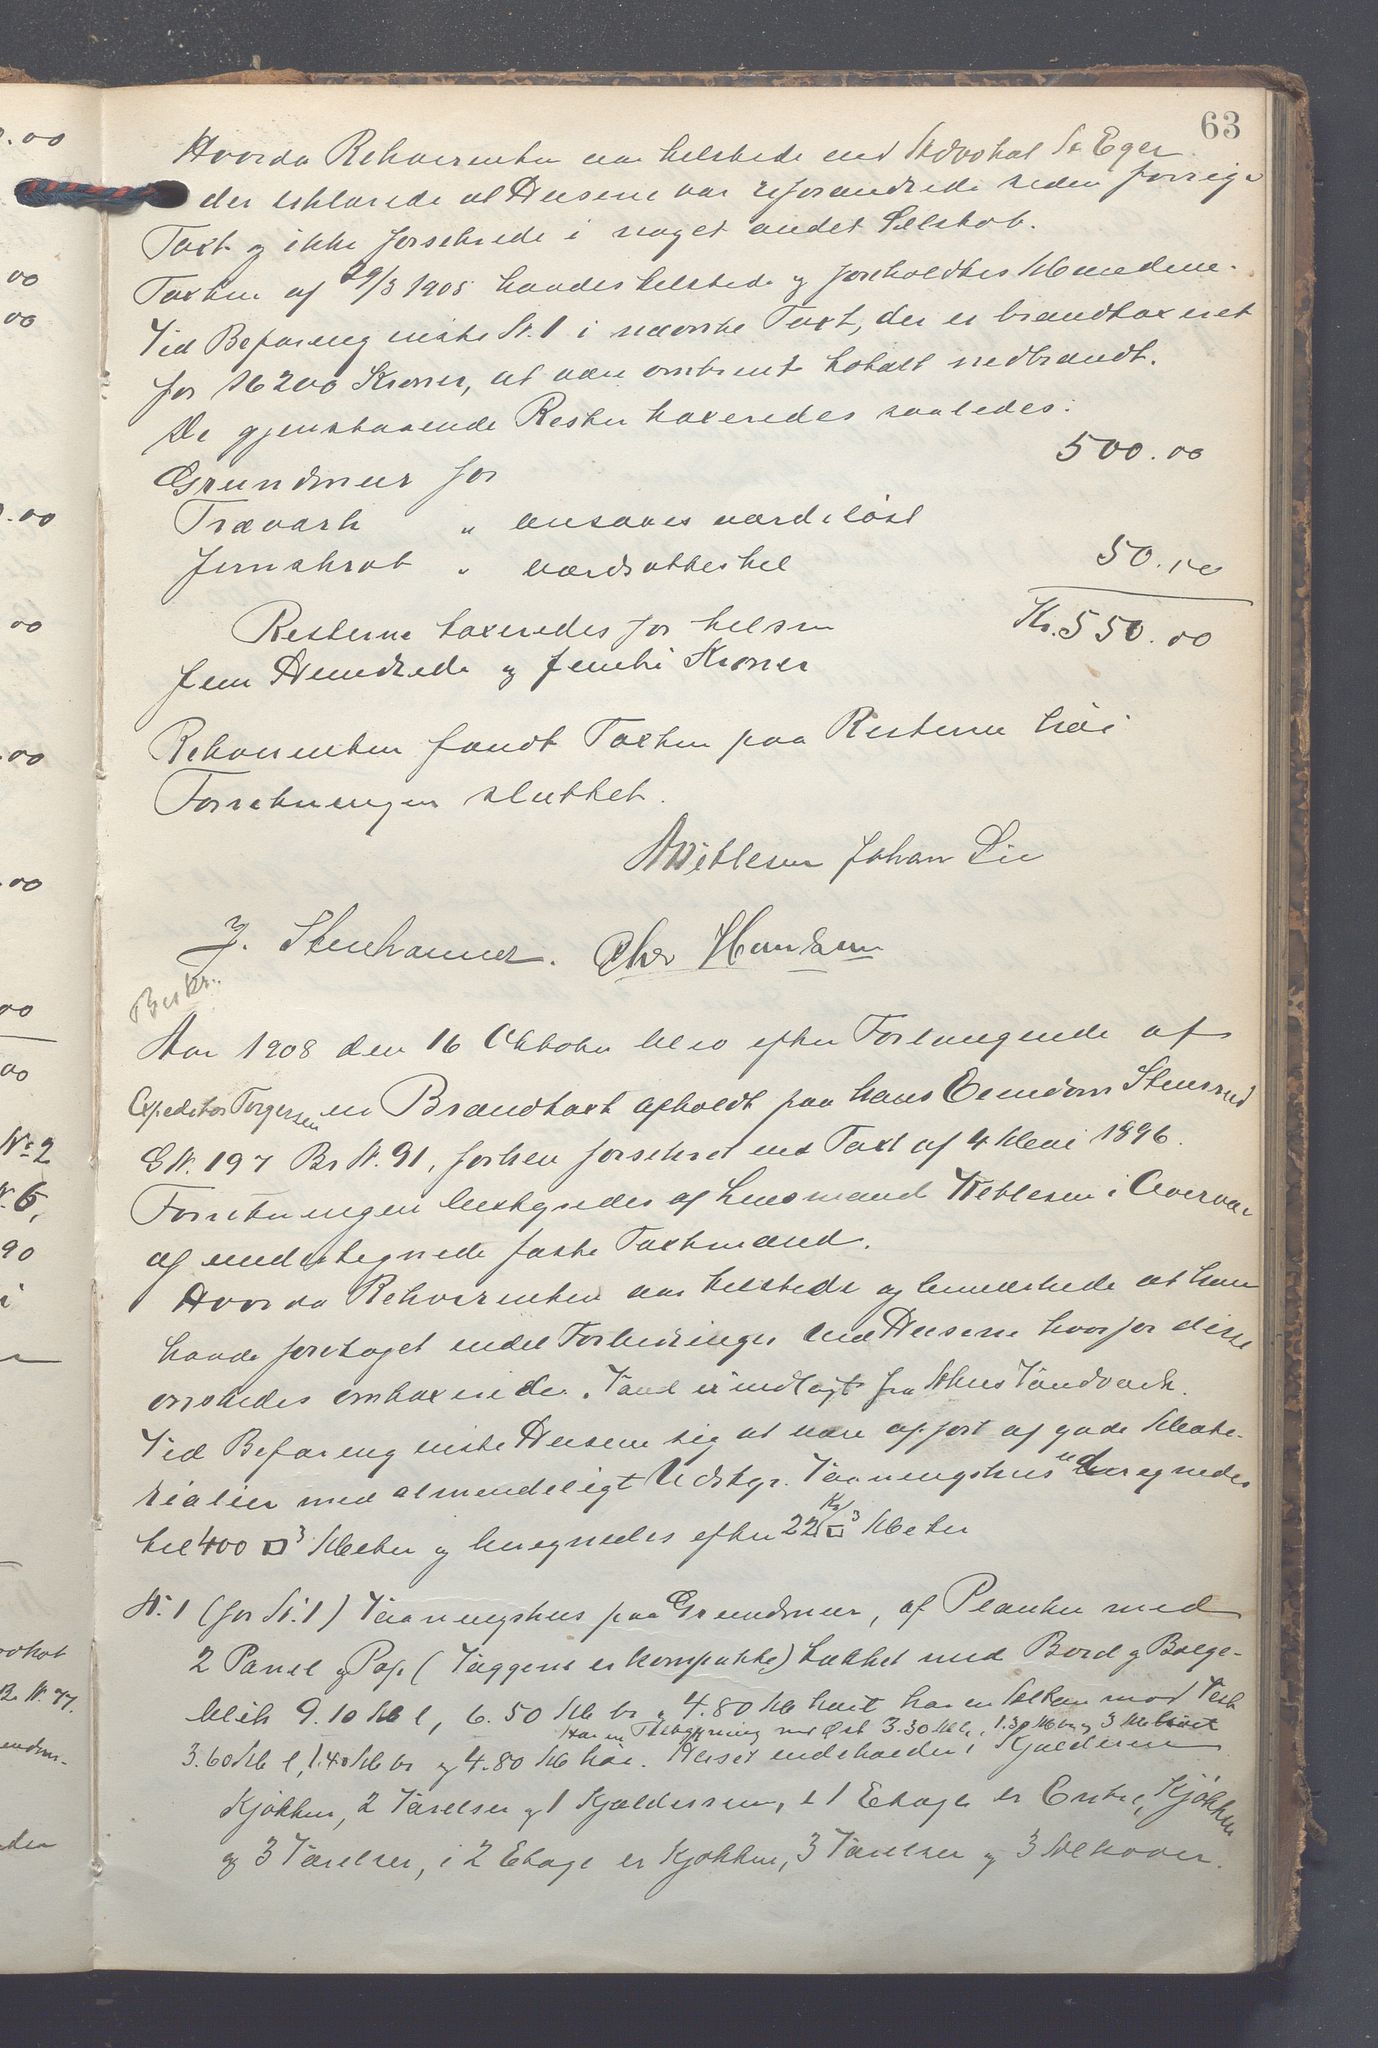 63
Hvorda Rekvirenten var tilstede ved Advokat St Eger
der erklærede at Husene var uforandrede siden forrige
Taxt og ikke forsikrede i noget andet Selskab.
Taxten af 29/3 1905 havdes tilstede og foreholdtes Mændene.
Ved Befaring viste No. 1 i nævnte Taxt, der er brandtaxeret
for 16200 Kroner, at være omtrent totalt nedbrændt.
De gjenstaaende Rester taxeredes saaledes:
Grundmur for 500.00
Trævark " ansaaes værdiløst
Jernskrab " værdsattes til 50.00
Resterne taxeredes for tilsm Kr. 550.00
fem Hundrede og femti Kroner
Rekvirenten fandt Taxten paa Resterne høi
Forretningen sluttet.
A Wetlesen Johan Lie
J. Stenhammer. Chr Hansen
Beskr.
Aar 1908 den 16 Oktober blev efter Forlangende af
Expeditør Torgersen en Brandtaxt afholdt paa hans Eiendom Stensrud
G N. 197 Br N. 91, forhen forsikret ved Taxt af 4 Mai 1896.
Forretningen bestyredes af Lensmand Wetlesen i Overvær
af undertegnede faste Taxtmænd.
Hvorda Rekvirenten var tilstede og bemærkede at han
havde foretaget endel Forbedringer ved Husene hvorfor disse
ønskedes omtaxerede. Vand er indlagt fra Akers Vandværk.
Ved Befaring viste Husene sig at være opført af gode Mate-
rialier med almindeligt Udstyr. Vaaningshus udregnedes
til 400 □3 Meter og beregnedes efter 22 Kr/□3 Meter
N. 1 (før N. 1) Vaaningshus paa Grundmur, af Planker med
2 Panel og Pap (Væggene er kompakte) tækket med Bord og Bølge-
blik 9.10 M l, 6.50 M br og 4.80 M høit har en Altan mod Vest
Har en Tilbygning mod Øst 3.30 M l, 1.30 M br og 3 M høit
3.60 M l, 1.40 M br og 4.80 M høi. Huset indeholder i Kjælderen
Kjøkken, 2 Værelser og 1 Kjælderrum, i 1 Etage er Entre, Kjøkken
og 3 Værelser, i 2 Etage er Kjøkken, 3 Værelser og 3 Alkover.